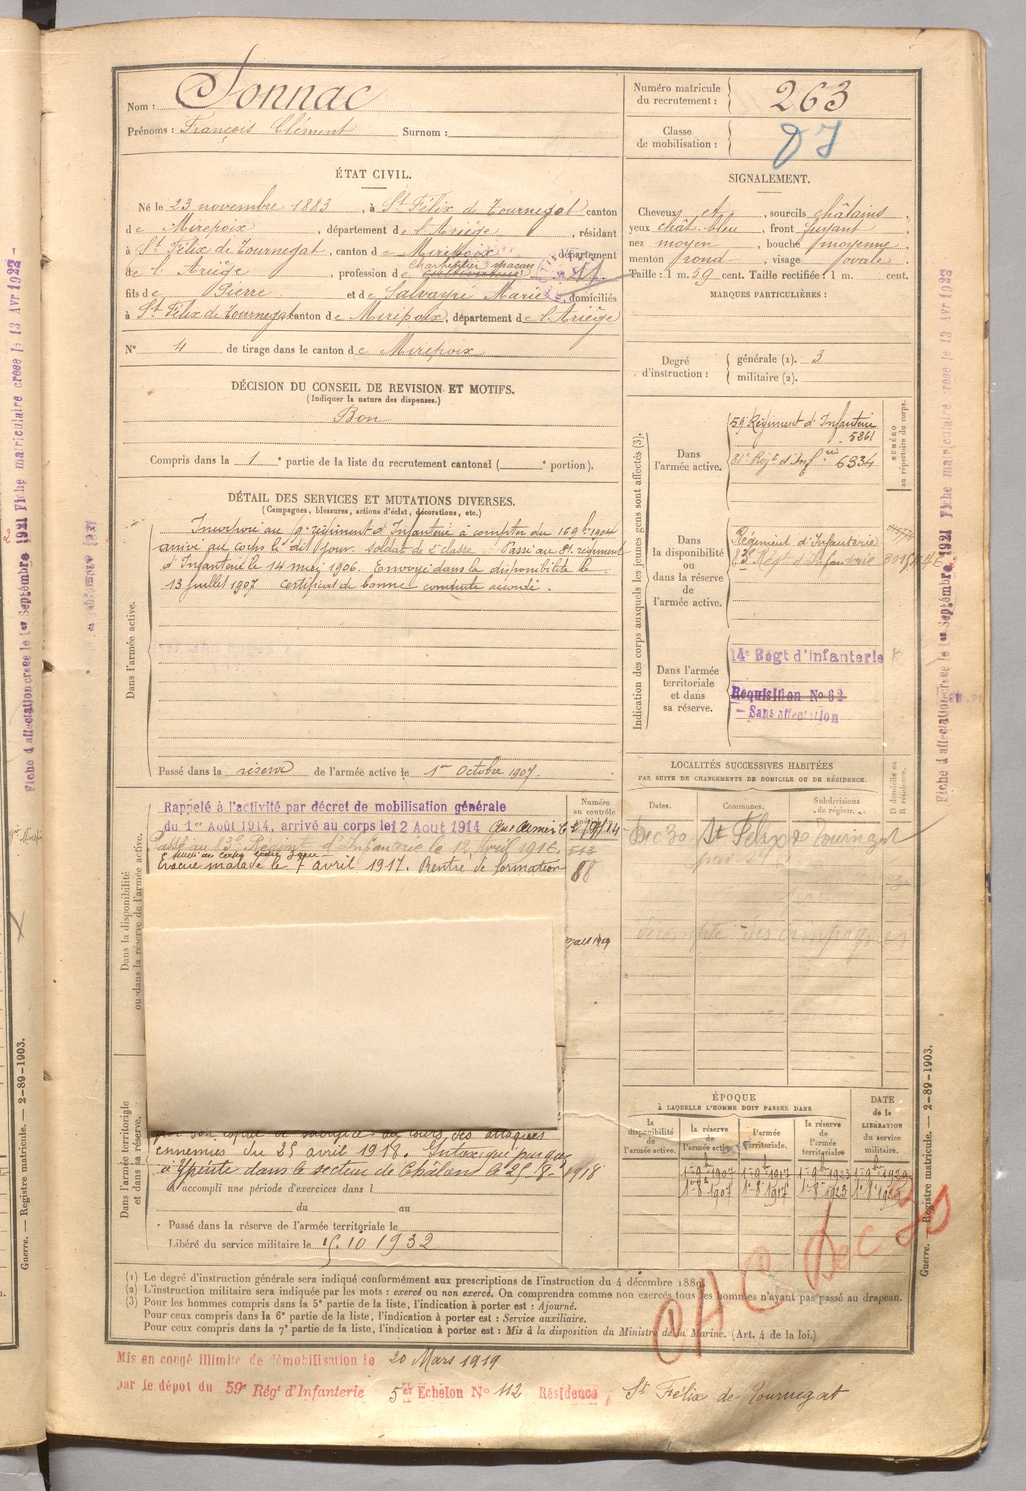 Nom : Sonnac
Prénoms : François Clément Surnom :
Numéro matricule du recrutement : 263
Classe de mobilisation :
ÉTAT CIVIL.
Né le 23 novembre 1883, à St Félix de Tournegat canton
de Mirepoix, département de l'Ariège, résidant
à St Félix de Tournegat, canton de Mirepoix, département
de l'Ariège, profession de Charpentier maçon
fils de Pierre et de Salvayre Marie, domiciliés
à St Félix de Tournegat canton de Mirepoix, département de l'Ariège
N° 4 de tirage dans le canton de Mirepoix
SIGNALEMENT.
Cheveux et, sourcils châtains,
yeux chât. bleu, front fuyant
nez moyen, bouche moyenne,
menton rond, visage ovale.
Taille : 1 m. 59 cent. Taille rectifiée : 1 m. cent.
MARQUES PARTICULIÈRES :
Degré d'instruction : générale (1). 3
militaire (2).
DÉCISION DU CONSEIL DE REVISION ET MOTIFS.
(Indiquer la nature des dispenses.)
Bon
Compris dans la 1e partie de la liste du recrutement cantonal ( e portion).
DÉTAIL DES SERVICES ET MUTATIONS DIVERSES.
(Campagnes, blessures, actions d'éclat, décorations, etc.)
Dans l'armée active.
Incorporé au régiment d'Infanterie à compter du 16 9bre 1904
arrivé au corps le dit jour. soldat de 2e classe. Passé au 81e régiment
d'Infanterie le 14 mai 1906. Envoyé dans la disponibilité le
13 juillet 1907 certificat de bonne conduite accordé.
Passé dans la réserve de l'armée active le 1er Octobre 1907.
Dans la disponibilité ou dans la réserve de l'armée active.
Rappelé à l'activité par décret de mobilisation générale
du 1er Août 1914, arrivé au corps le 12 Aout 1914 Aux Armées
Passé au 83e Régiment d'Infanterie le 12 Avril 1916.
Evacué malade le 7 avril 1917. Rentré de formation
88
Dans l'armée territoriale et dans sa réserve.
au cours des attaques
ennemies du 25 avril 1918. Intoxiqué par gaz
à Ypérite dans le secteur de 25-8-1918
a accompli une période d'exercices dans l
du au
Passé dans la réserve de l'armée territoriale le
Libéré du service militaire le 15. 10 1932
Indication des corps auxquels les jeunes gens sont affectés (3).
NUMÉRO au répertoire du corps.
Dans l'armée active.
59e Régiment d'Infanterie
5261
81e Regt d'Infrie 6334
Dans la disponibilité ou dans la réserve de l'armée active.
Régiment d'Infanterie
83e Regt d'Infanterie
Dans l'armée territoriale et dans sa réserve.
14e Regt d'infanterie
Requisition No 62
- Sans affectation
LOCALITÉS SUCCESSIVES HABITÉES
PAR SUITE DE CHANGEMENTS DE DOMICILE OU DE RÉSIDENCE.
Dates. Communes. Subdivisions de région.
D domicile ou R résidence.
Dec 30 St Félix de Tournegat
décompte des campagnes
ÉPOQUE
À LAQUELLE L'HOMME DOIT PASSER DANS
la disponibilité de l'armée active.
la réserve de l'armée active.
l'armée territoriale.
la réserve de l'armée territoriale.
DATE de la LIBÉRATION du service militaire.
CAC Dec 30
(1) Le degré d'instruction générale sera indiqué conformément aux prescriptions de l'instruction du 4 décembre 1889.
(2) L'instruction militaire sera indiquée par les mots : exercé ou non exercé. On comprendra comme non exercés tous les hommes n'ayant pas passé au drapeau.
(3) Pour les hommes compris dans la 5e partie de la liste, l'indication à porter est : Ajourné.
Pour ceux compris dans la 6e partie de la liste, l'indication à porter est : Service auxiliaire.
Pour ceux compris dans la 7e partie de la liste, l'indication à porter est : Mis à la disposition du Ministre de la Marine. (Art. 4 de la loi.)
Mis en congé illimité de démobilisation le 20 Mars 1919
par le dépot du 59e Régt d'Infanterie 5er Echelon No 112 Résidence, St Félix de Tournegat
Fiche d'affectation creee le 1er Septembre 1921 Fiche matriculaire creee le 13 Avr 1922
Guerre. — Registre matricule. — 2-89-1903.